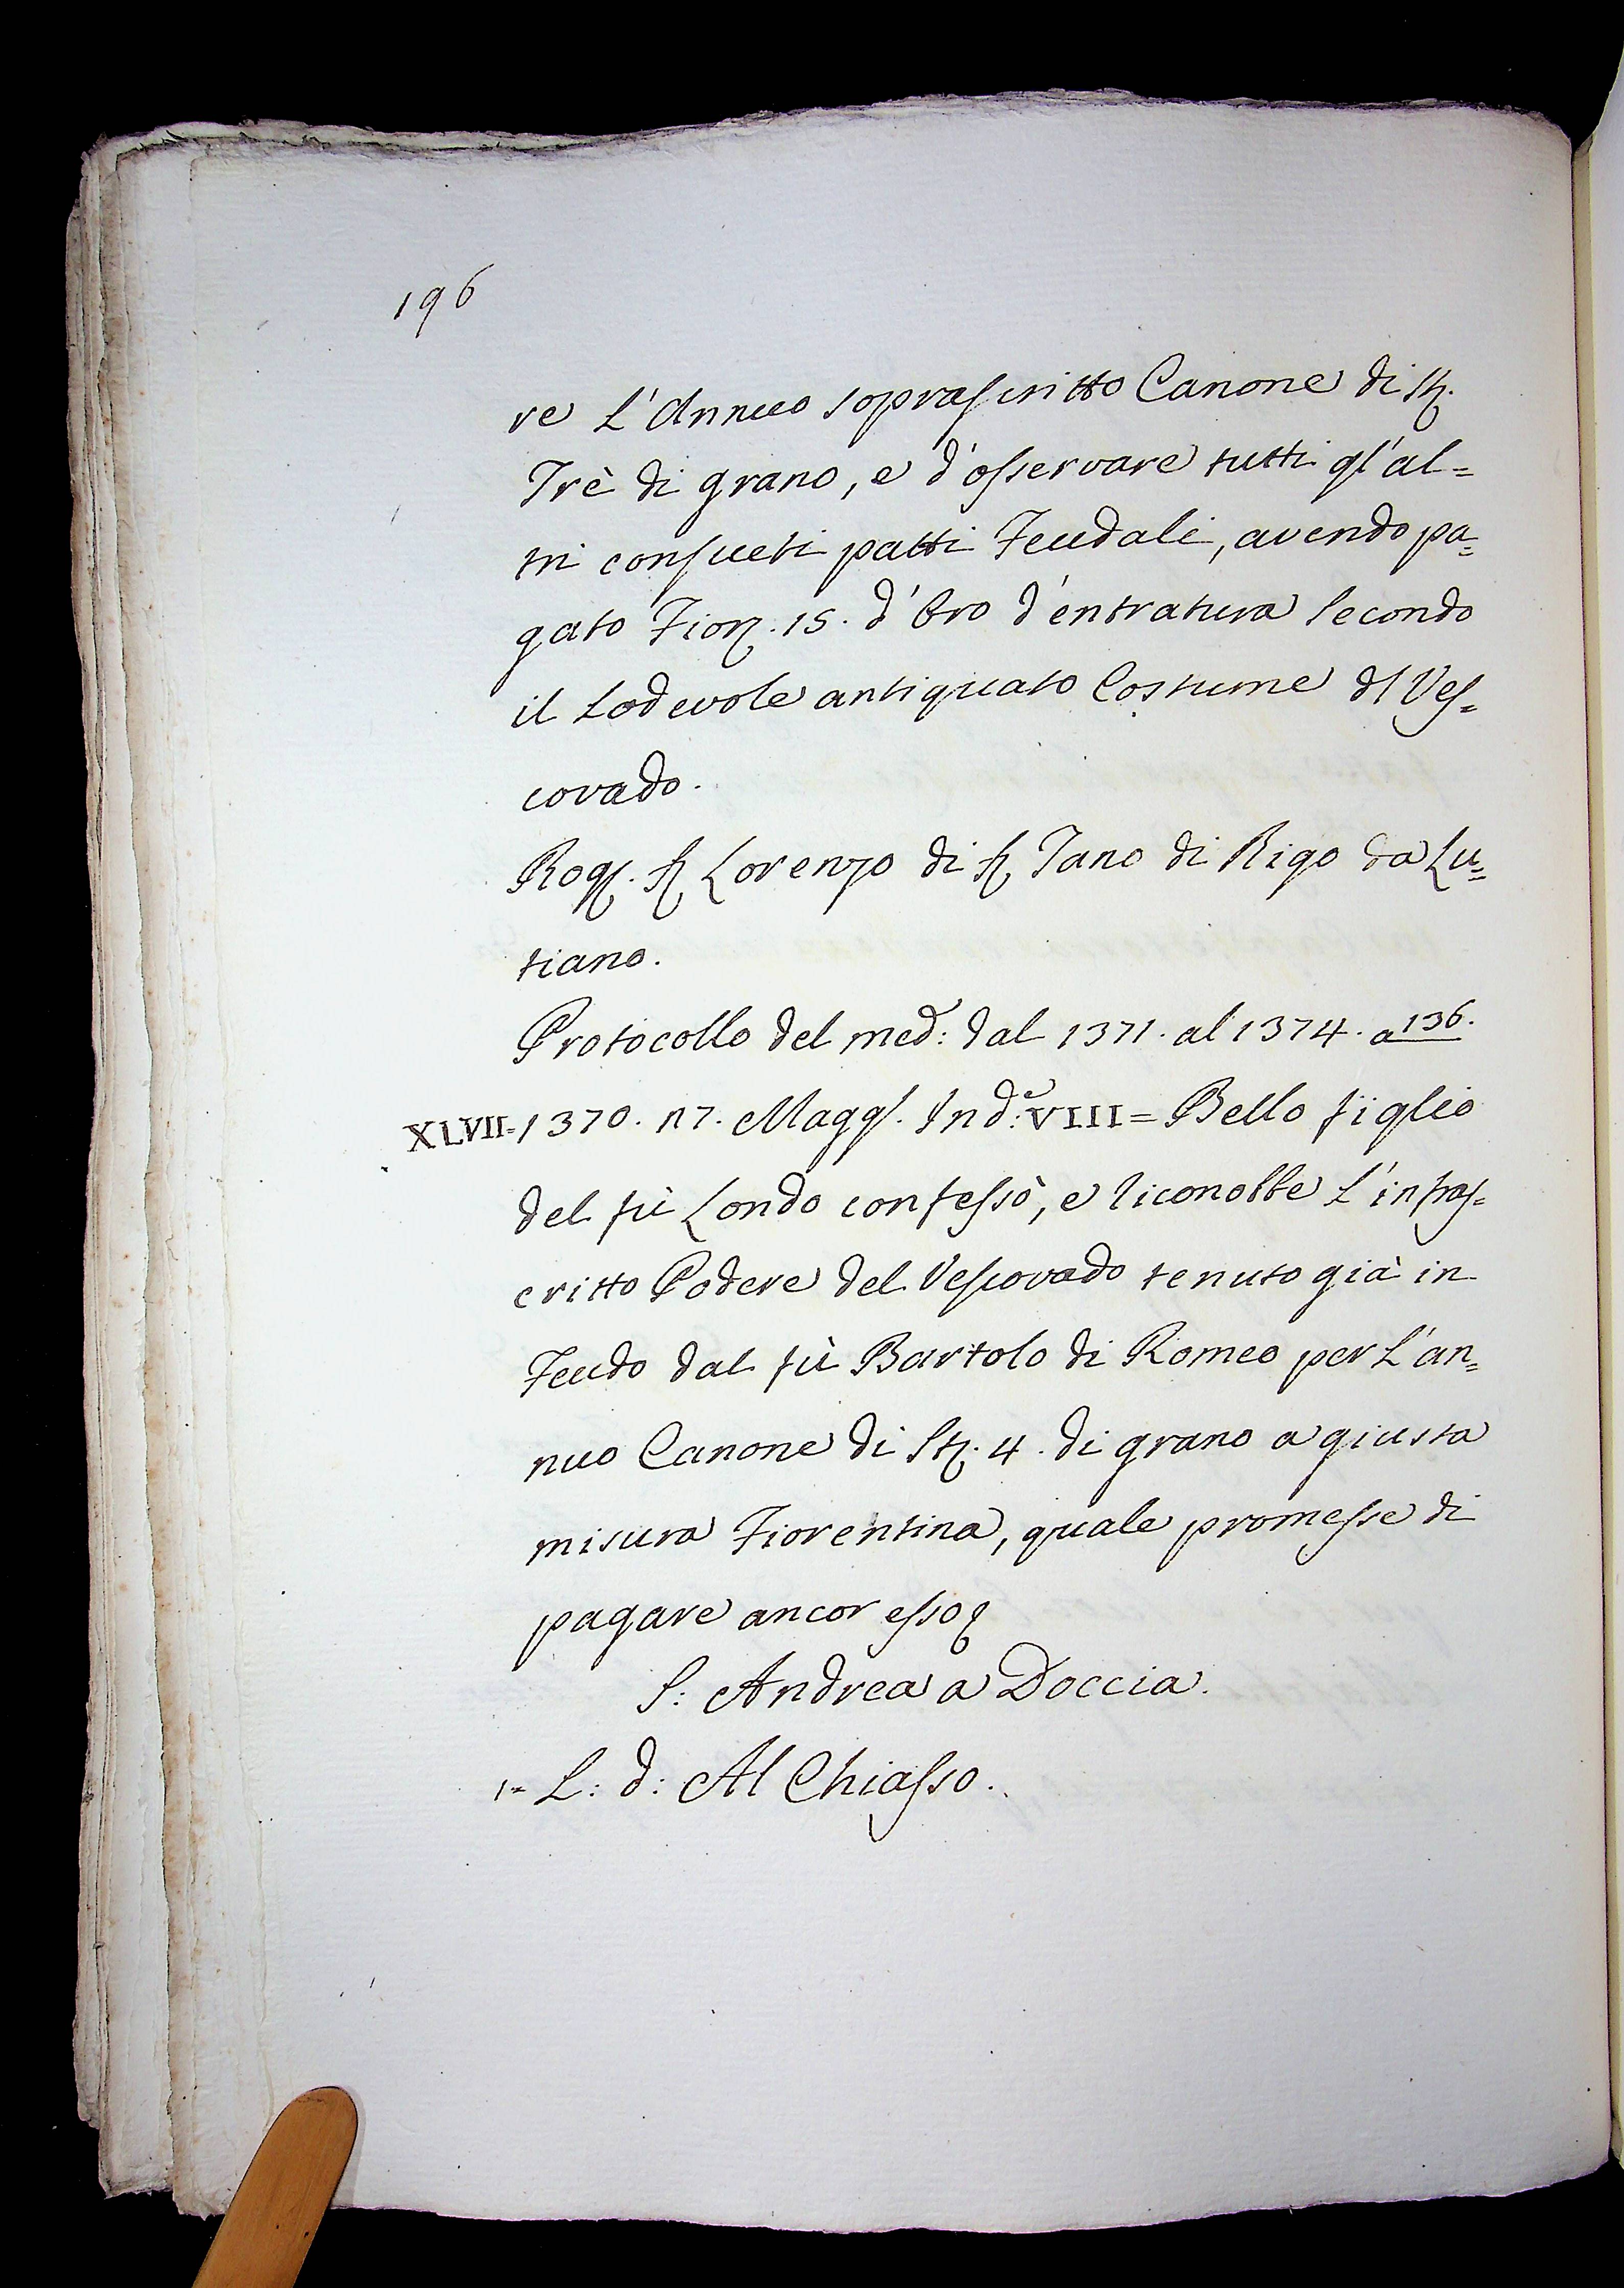 196
re L'Annuo soprascritto Canone di St.
Trè di grano, e d'osservare tutti gl'al=
tri consueti patti Feudali, avendo pa=
gato Fior. 15. d'Oro d'entratura secondo
il Lodevole antiquato Costume dl Ves=
covado.
Rog. Sr Lorenzo di Sr Tano di Rigo da Lu=
tiano.
Protocollo del med: dal 1371. al 1374. a 136.
XLVII=1370. 17. Magg. Inde: VIII= Bello figlio
del fù Londo confessò, e riconobbe L'infras=
critto Podere del Vescovado tenuto già in
Feudo dal fù Bartolo di Romeo per L'an=
nuo Canone di St. 4. di grano a giusta
misura Fiorentina, quale promesse di
pagare ancor esso
S: Andrea a Doccia.
1= L: d: Al Chiasso.